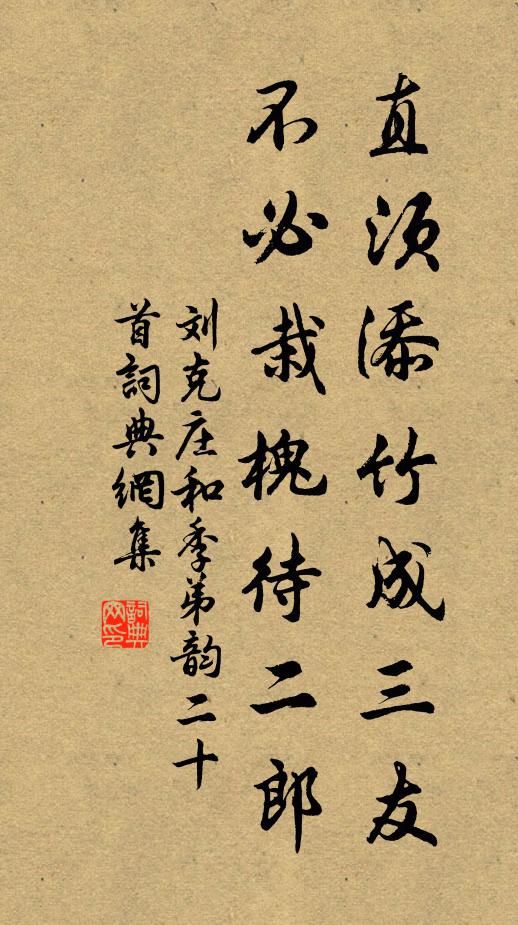 直须添竹成三友
不必栽槐待二郎
刘克庄和季弟韵二十
首词典網集
詞典網印